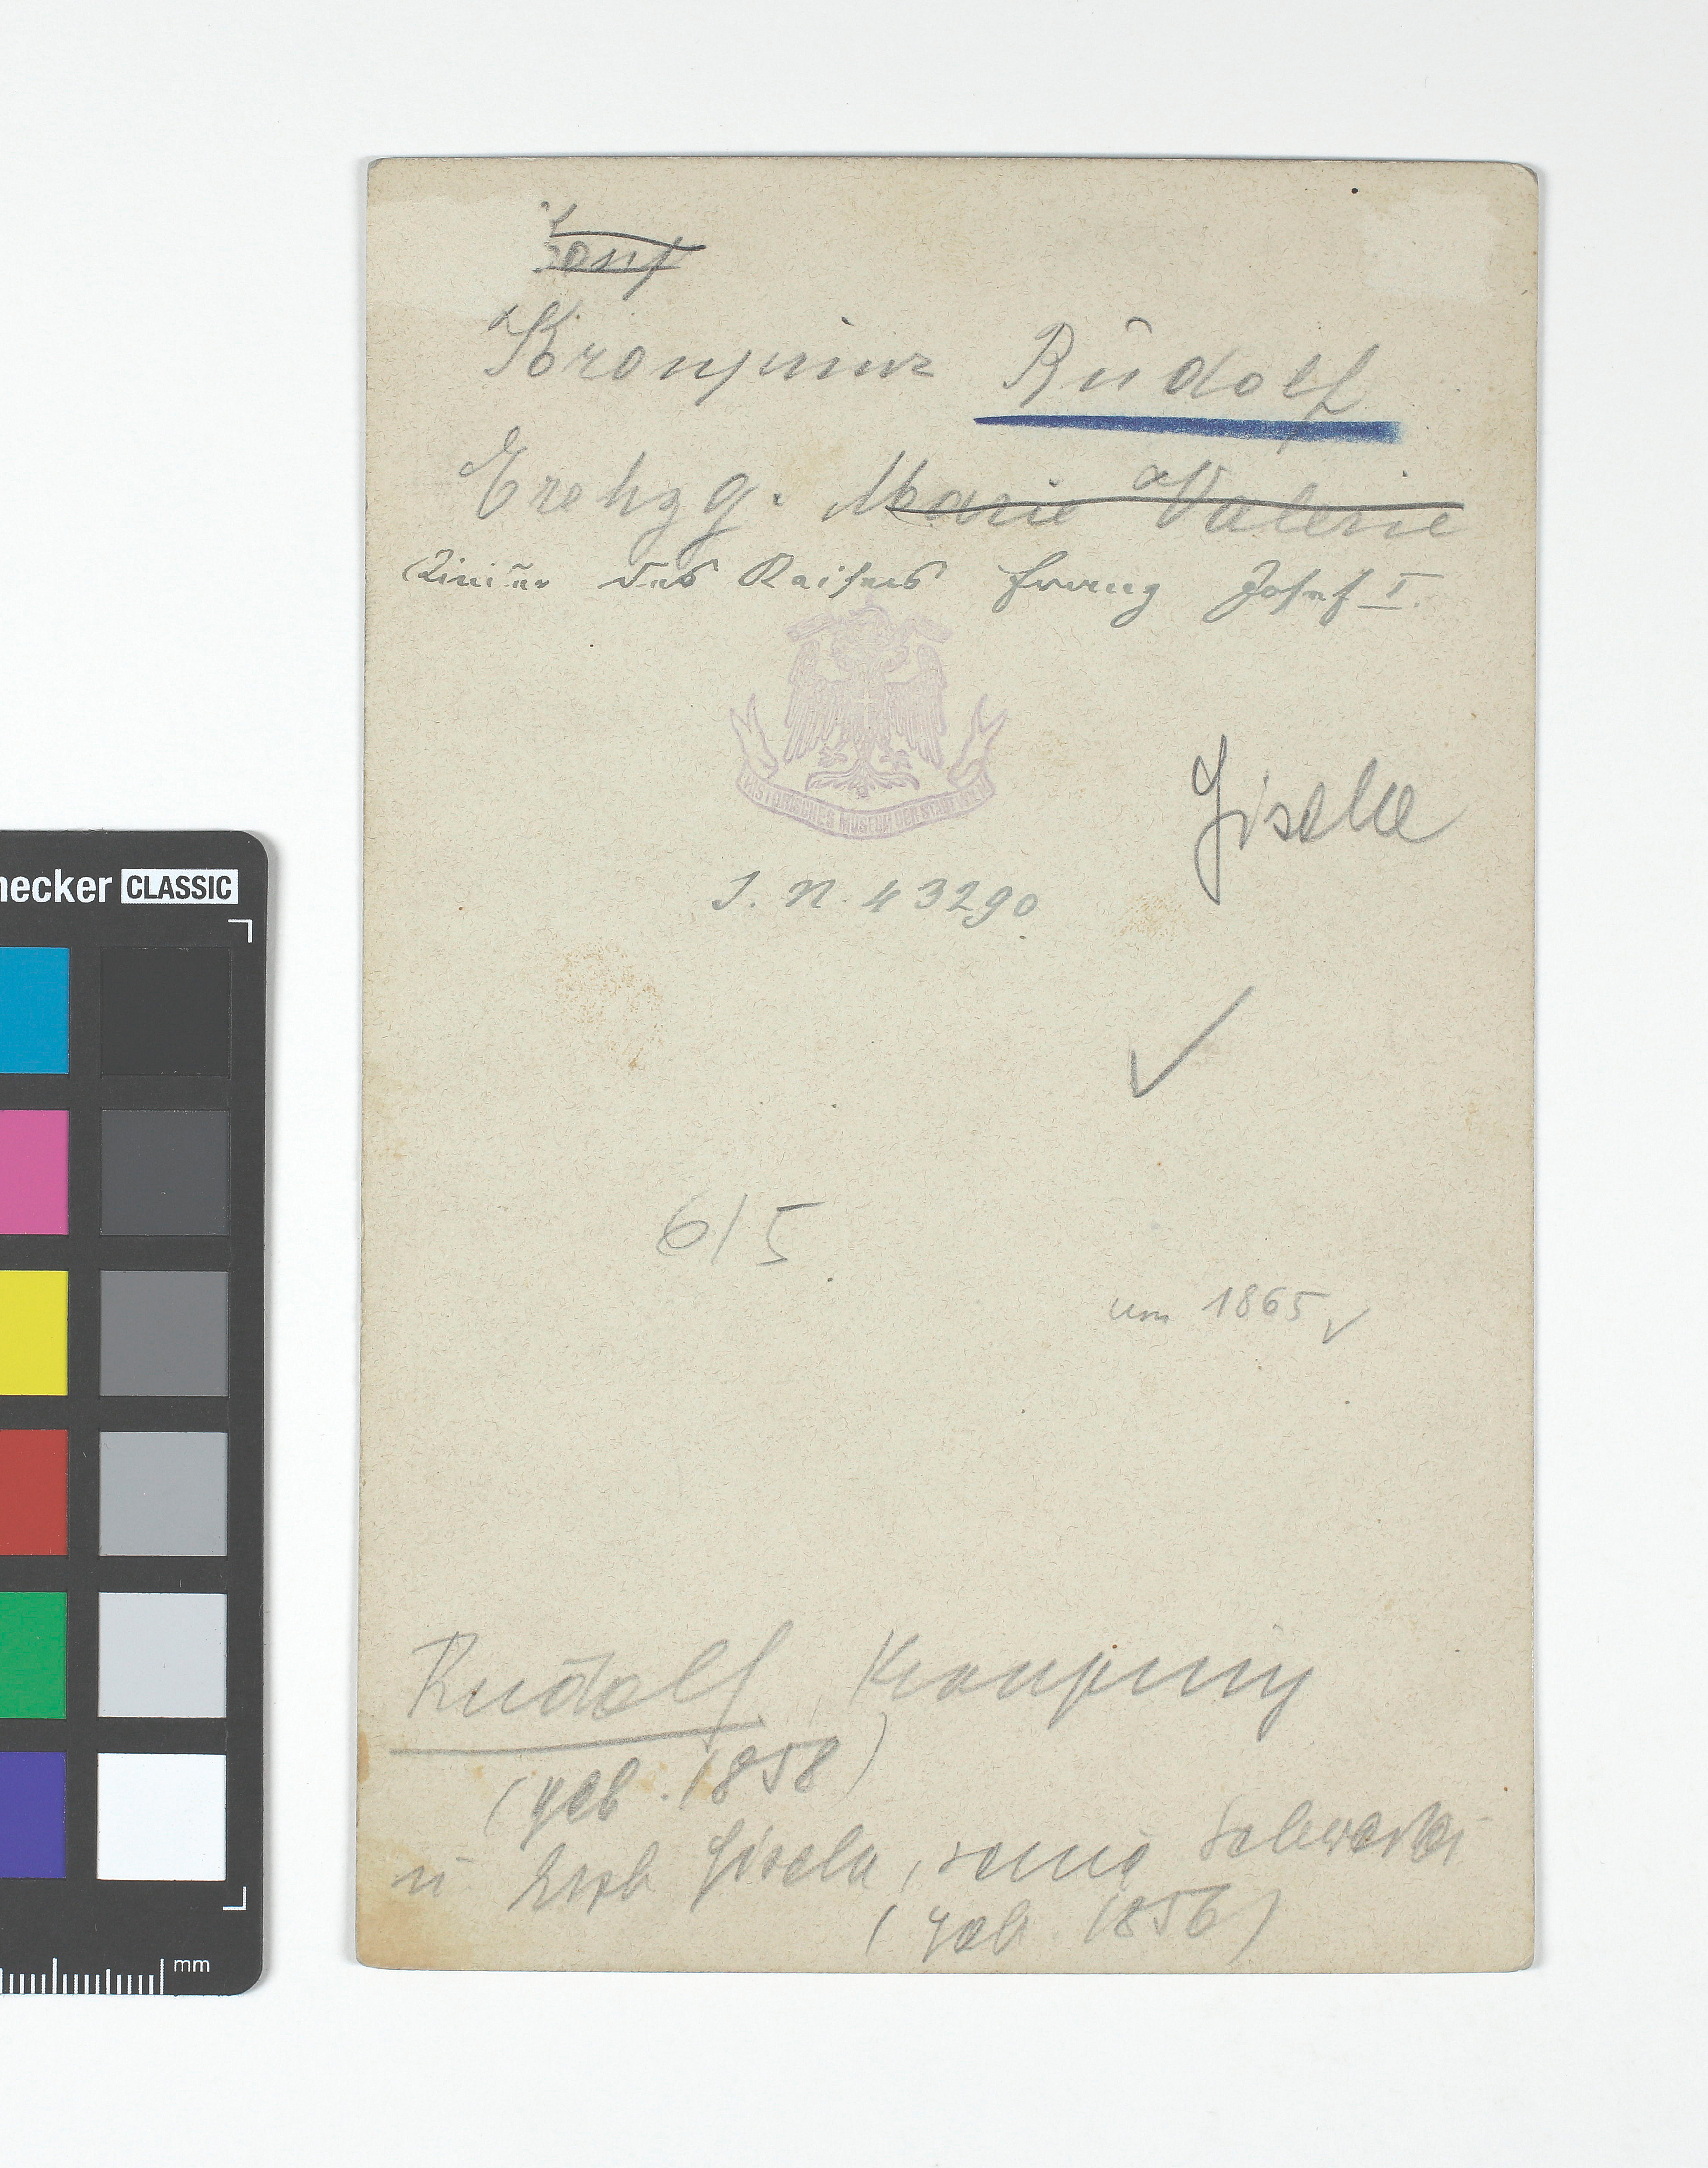 Kronprinz Rudolf
Erzhzg. Marie Valerie
Kinder des Kaisers Franz Josef I.
HISTORISCHES MUSEUM DER STADT WIEN
Gisella
I. N. 43290
6/5
um 1865
Rudolf Kronprinz
(geb. 1858)
u Erzh Gisela, seine Schwester
(geb. 1856)
necker CLASSIC
mm